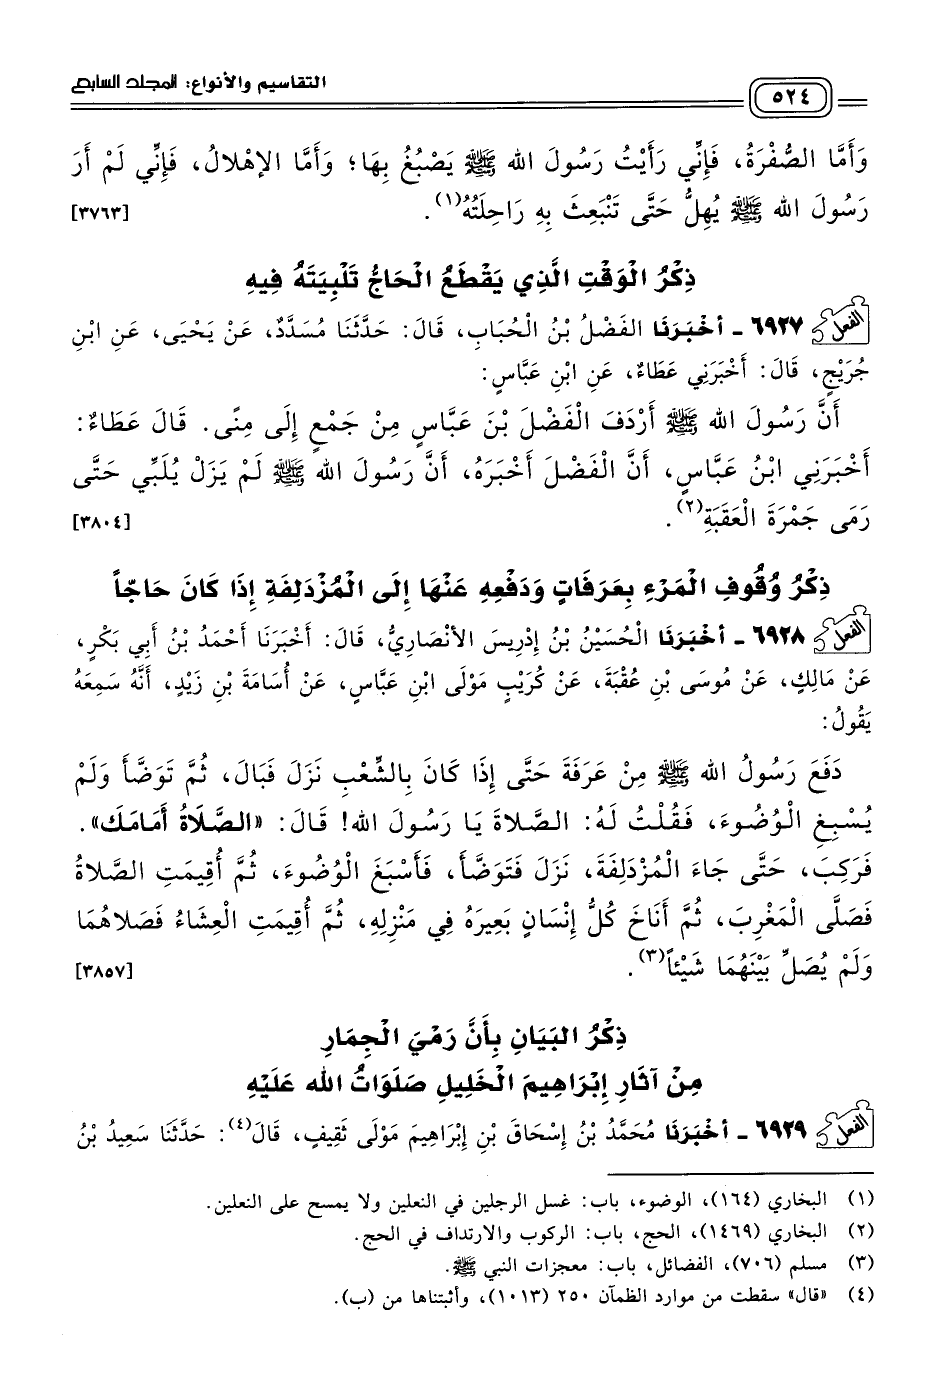 التقاسيم والأنواع: المجلد السابع
٥٢٤
وَأَمَّا الصُّفْرَةُ، فَإِنِّي رَأَيْتُ رَسُولَ الله ﷺ يَصْبُغُ بِهَا؛ وَأَمَّا الإِهْلالُ، فَإِنِّي لَمْ أَرَ
رَسُولَ الله ﷺ يُهِلُّ حَتَّى تَنْبَعِثَ بِهِ رَاحِلَتُهُ(١). [٣٧٦٣]
ذِكْرُ الْوَقْتِ الَّذِي يَقْطَعُ الْحَاجُّ تَلْبِيَتَهُ فِيهِ
الفعل ٦٩٢٧ - أَخْبَرَنَا الفَضْلُ بْنُ الْحُبَابِ، قَالَ: حَدَّثَنَا مُسَدَّدٌ، عَنْ يَحْيَى، عَنِ ابْنِ
جُرَيْجٍ، قَالَ: أَخْبَرَنِي عَطَاءٌ، عَنِ ابْنِ عَبَّاسٍ:
أَنَّ رَسُولَ الله ﷺ أَرْدَفَ الْفَضْلَ بْنَ عَبَّاسٍ مِنْ جَمْعٍ إِلَى مِنًى. قَالَ عَطَاءٌ:
أَخْبَرَنِي ابْنُ عَبَّاسٍ، أَنَّ الْفَضْلَ أَخْبَرَهُ، أَنَّ رَسُولَ الله ﷺ لَمْ يَزَلْ يُلَبِّي حَتَّى
رَمَى جَمْرَةَ الْعَقَبَةِ(٢). [٣٨٠٤]
ذِكْرُ وُقُوفِ الْمَرْءِ بِعَرَفَاتٍ وَدَفْعِهِ عَنْهَا إِلَى الْمُزْدَلِفَةِ إِذَا كَانَ حَاجّاً
الفعل ٦٩٢٨ - أَخْبَرَنَا الْحُسَيْنُ بْنُ إِدْرِيسَ الأَنْصَارِيُّ، قَالَ: أَخْبَرَنَا أَحْمَدُ بْنُ أَبِي بَكْرٍ،
عَنْ مَالِكٍ، عَنْ مُوسَى بْنِ عُقْبَةَ، عَنْ كُرَيْبٍ مَوْلَى ابْنِ عَبَّاسٍ، عَنْ أُسَامَةَ بْنِ زَيْدٍ، أَنَّهُ سَمِعَهُ
يَقُولُ:
دَفَعَ رَسُولُ الله ﷺ مِنْ عَرَفَةَ حَتَّى إِذَا كَانَ بِالشِّعْبِ نَزَلَ فَبَالَ، ثُمَّ تَوَضَّأَ وَلَمْ
يُسْبِغِ الْوُضُوءَ، فَقُلْتُ لَهُ: الصَّلاةَ يَا رَسُولَ الله! قَالَ: «الصَّلَاةُ أَمَامَكَ».
فَرَكِبَ، حَتَّى جَاءَ الْمُزْدَلِفَةَ، نَزَلَ فَتَوَضَّأَ، فَأَسْبَغَ الْوُضُوءَ، ثُمَّ أُقِيمَتِ الصَّلاةُ
فَصَلَّى الْمَغْرِبَ، ثُمَّ أَنَاخَ كُلُّ إِنْسَانٍ بَعِيرَهُ فِي مَنْزِلِهِ، ثُمَّ أُقِيمَتِ الْعِشَاءُ فَصَلاهُمَا
وَلَمْ يُصَلِّ بَيْنَهُمَا شَيْئاً(٣). [٣٨٥٧]
ذِكْرُ البَيَانِ بِأَنَّ رَمْيَ الْجِمَارِ
مِنْ آثَارِ إِبْرَاهِيمَ الْخَلِيلِ صَلَوَاتُ الله عَلَيْهِ
الفعل ٦٩٢٩ - أَخْبَرَنَا مُحَمَّدُ بْنُ إِسْحَاقَ بْنِ إِبْرَاهِيمَ مَوْلَى ثَقِيفٍ، قَالَ(٤): حَدَّثَنَا سَعِيدُ بْنُ
(١) البخاري (١٦٤)، الوضوء، باب: غسل الرجلين في النعلين ولا يمسح على النعلين.
(٢) البخاري (١٤٦٩)، الحج، باب: الركوب والارتداف في الحج.
(٣) مسلم (٧٠٦)، الفضائل، باب: معجزات النبي ﷺ.
(٤) «قال» سقطت من موارد الظمآن ٢٥٠ (١٠١٣)، وأثبتناها من (ب).